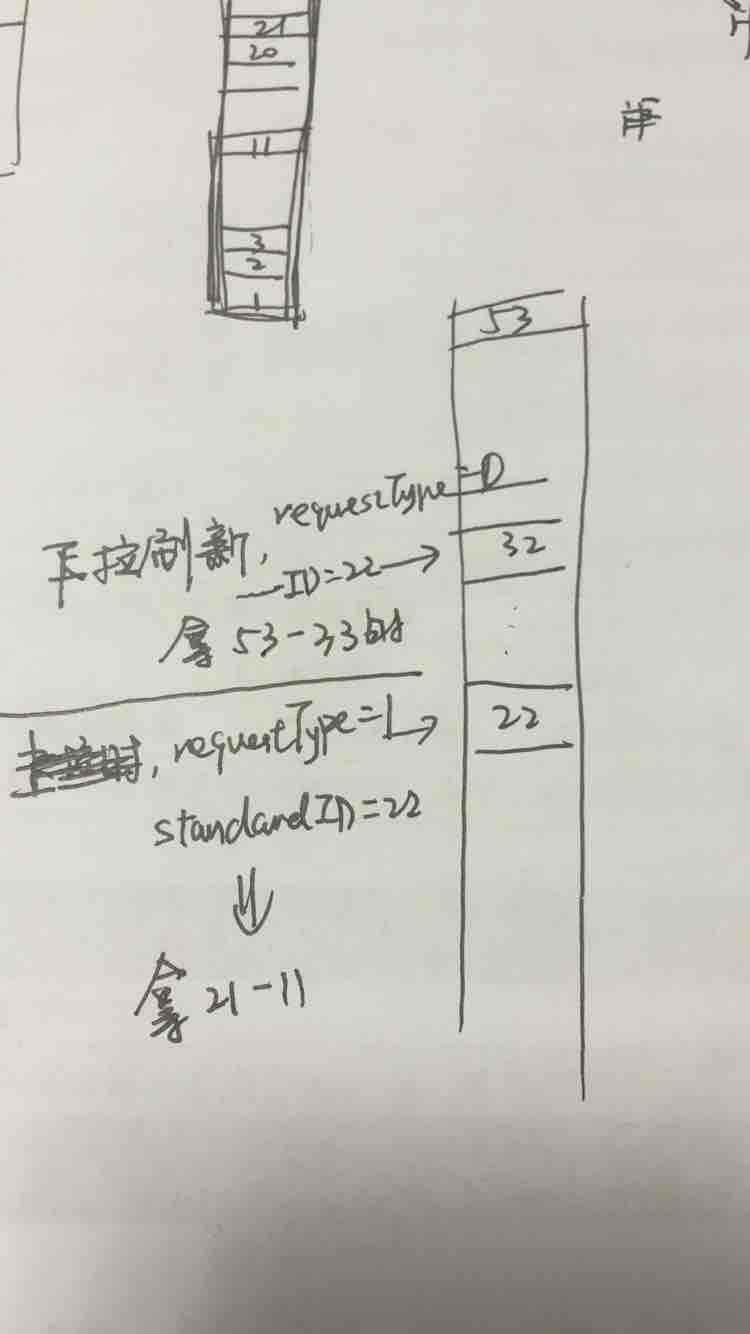 21
20
11
3
2
1
53
下拉刷新, requestType=D
—ID=22→
32
拿 53-33的
requestType=1→
22
standardID=22
拿 21-11